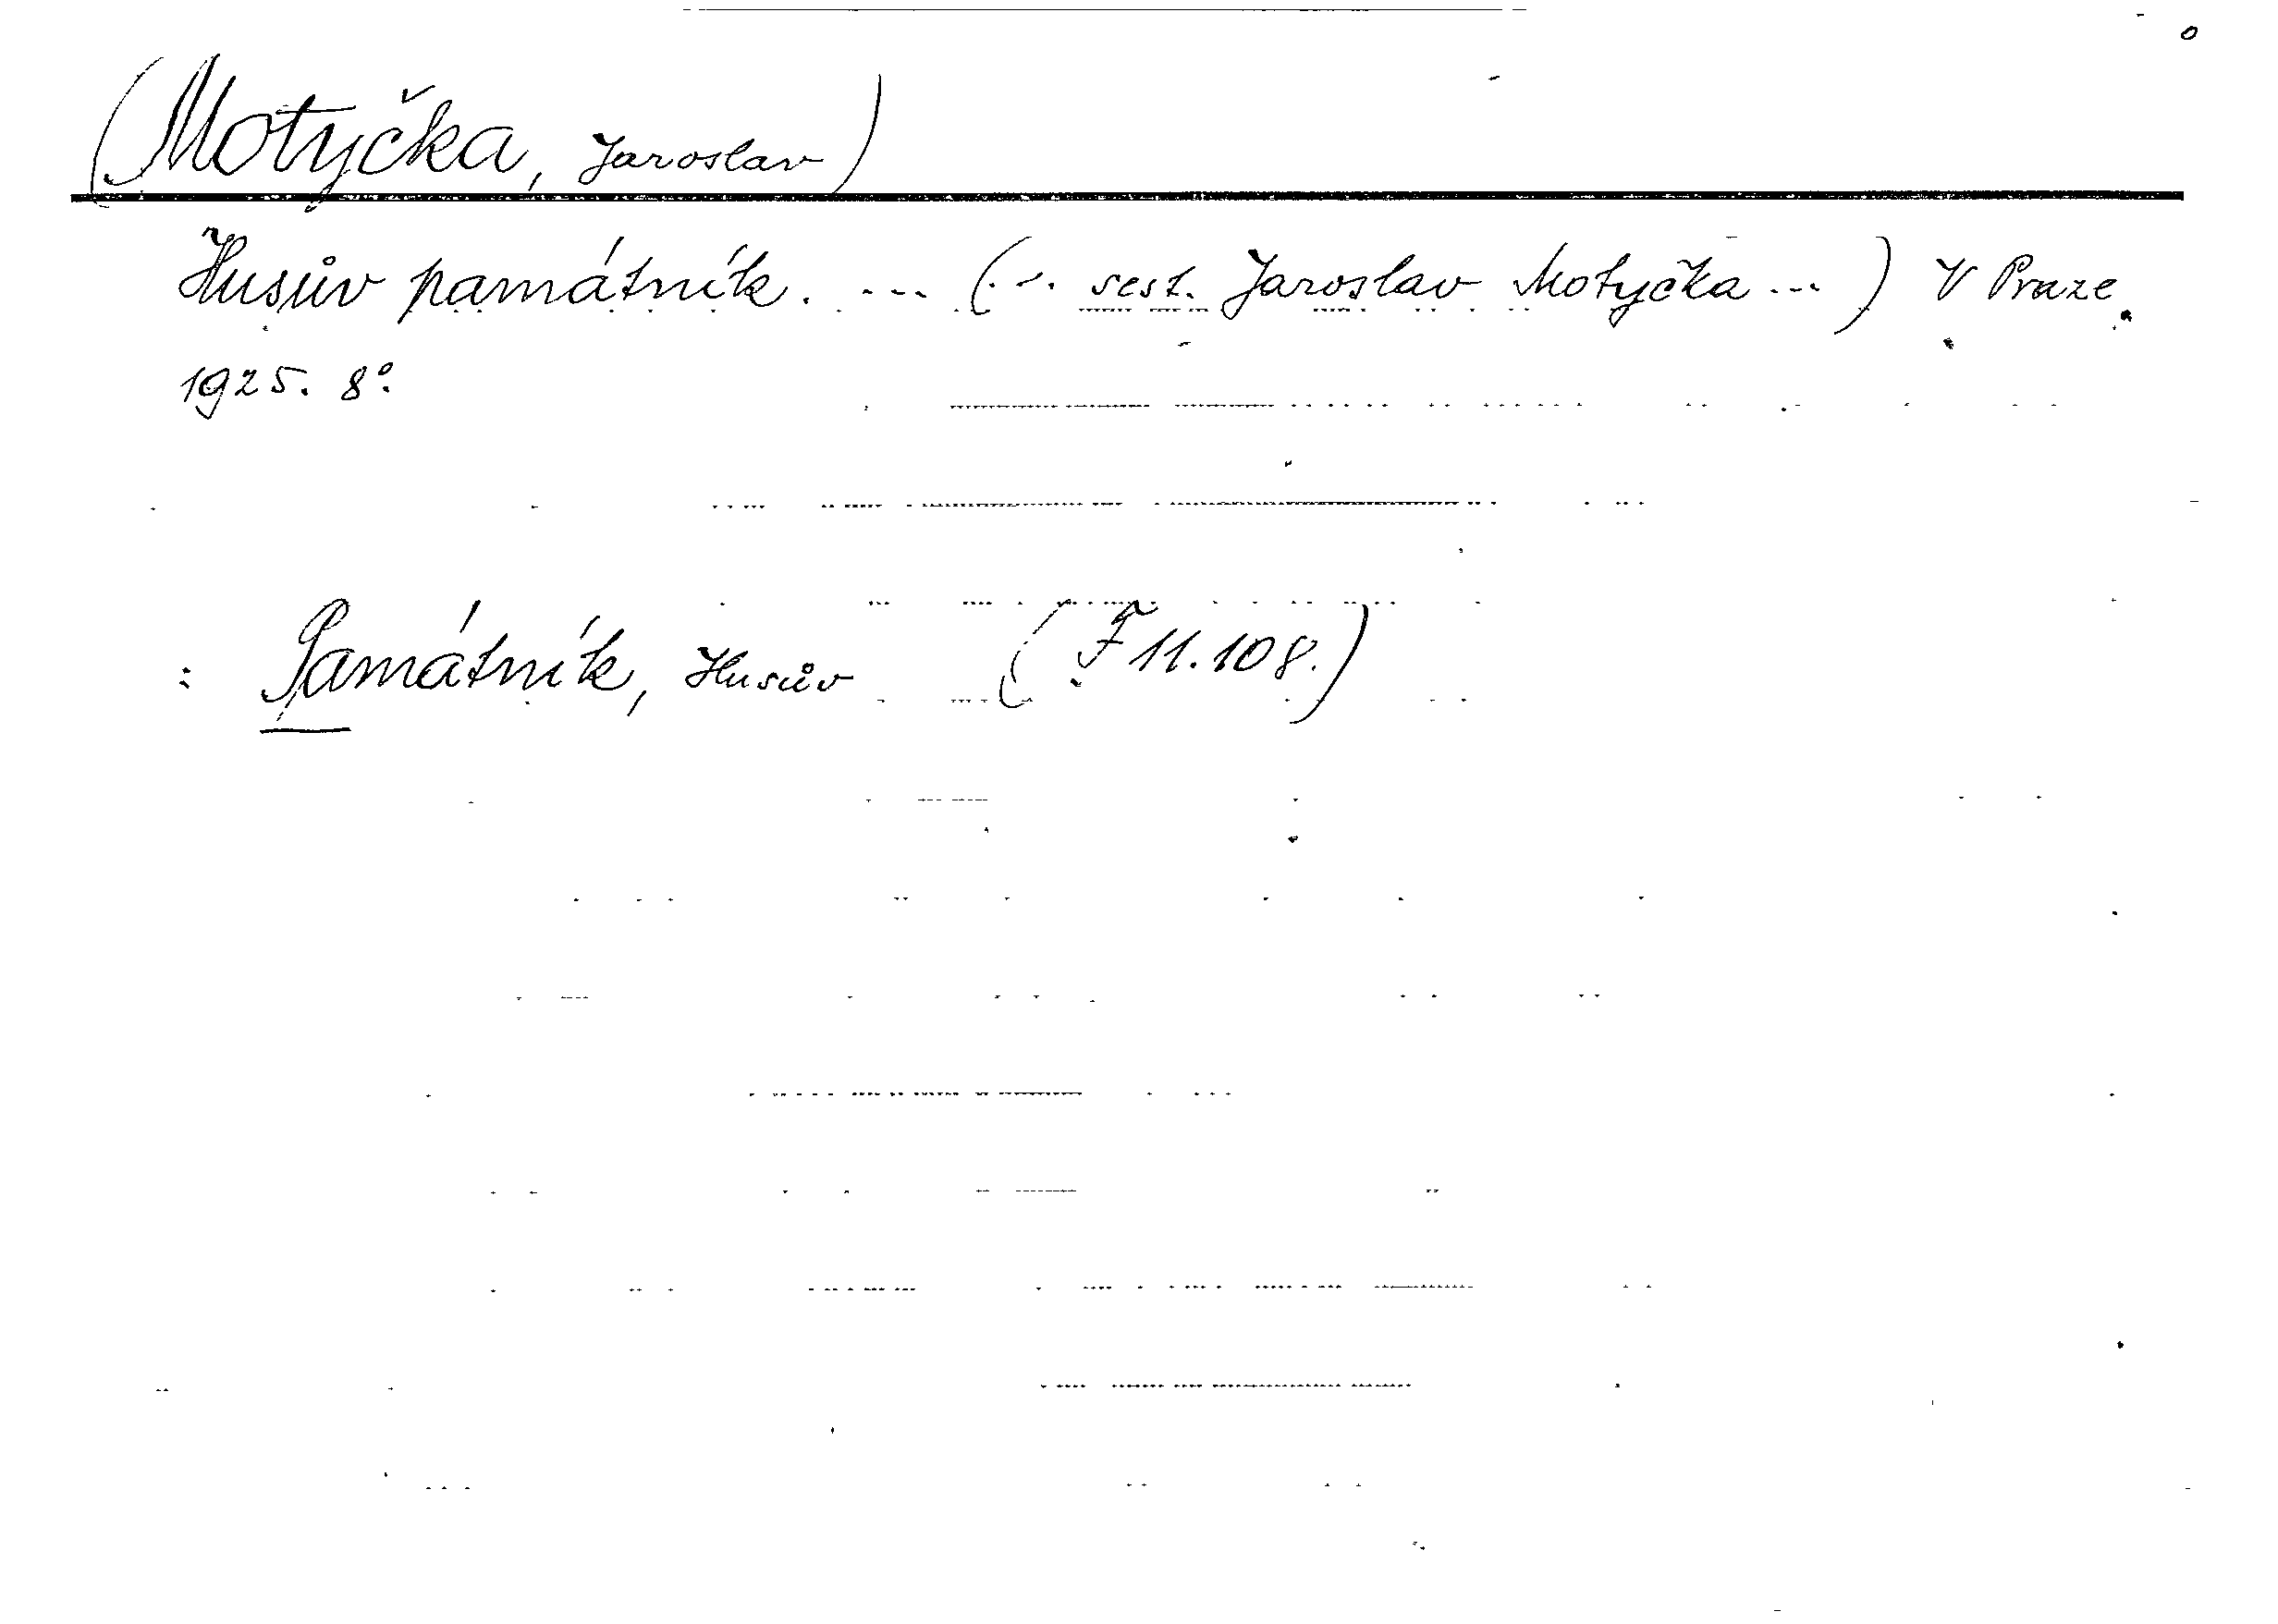 (Motyčka, Jaroslav)
Husův památník. ... (... sest. Jaroslav Motyčka ...) V Praze
1925. 8°.
: Památník, Husův (F 11.108.)